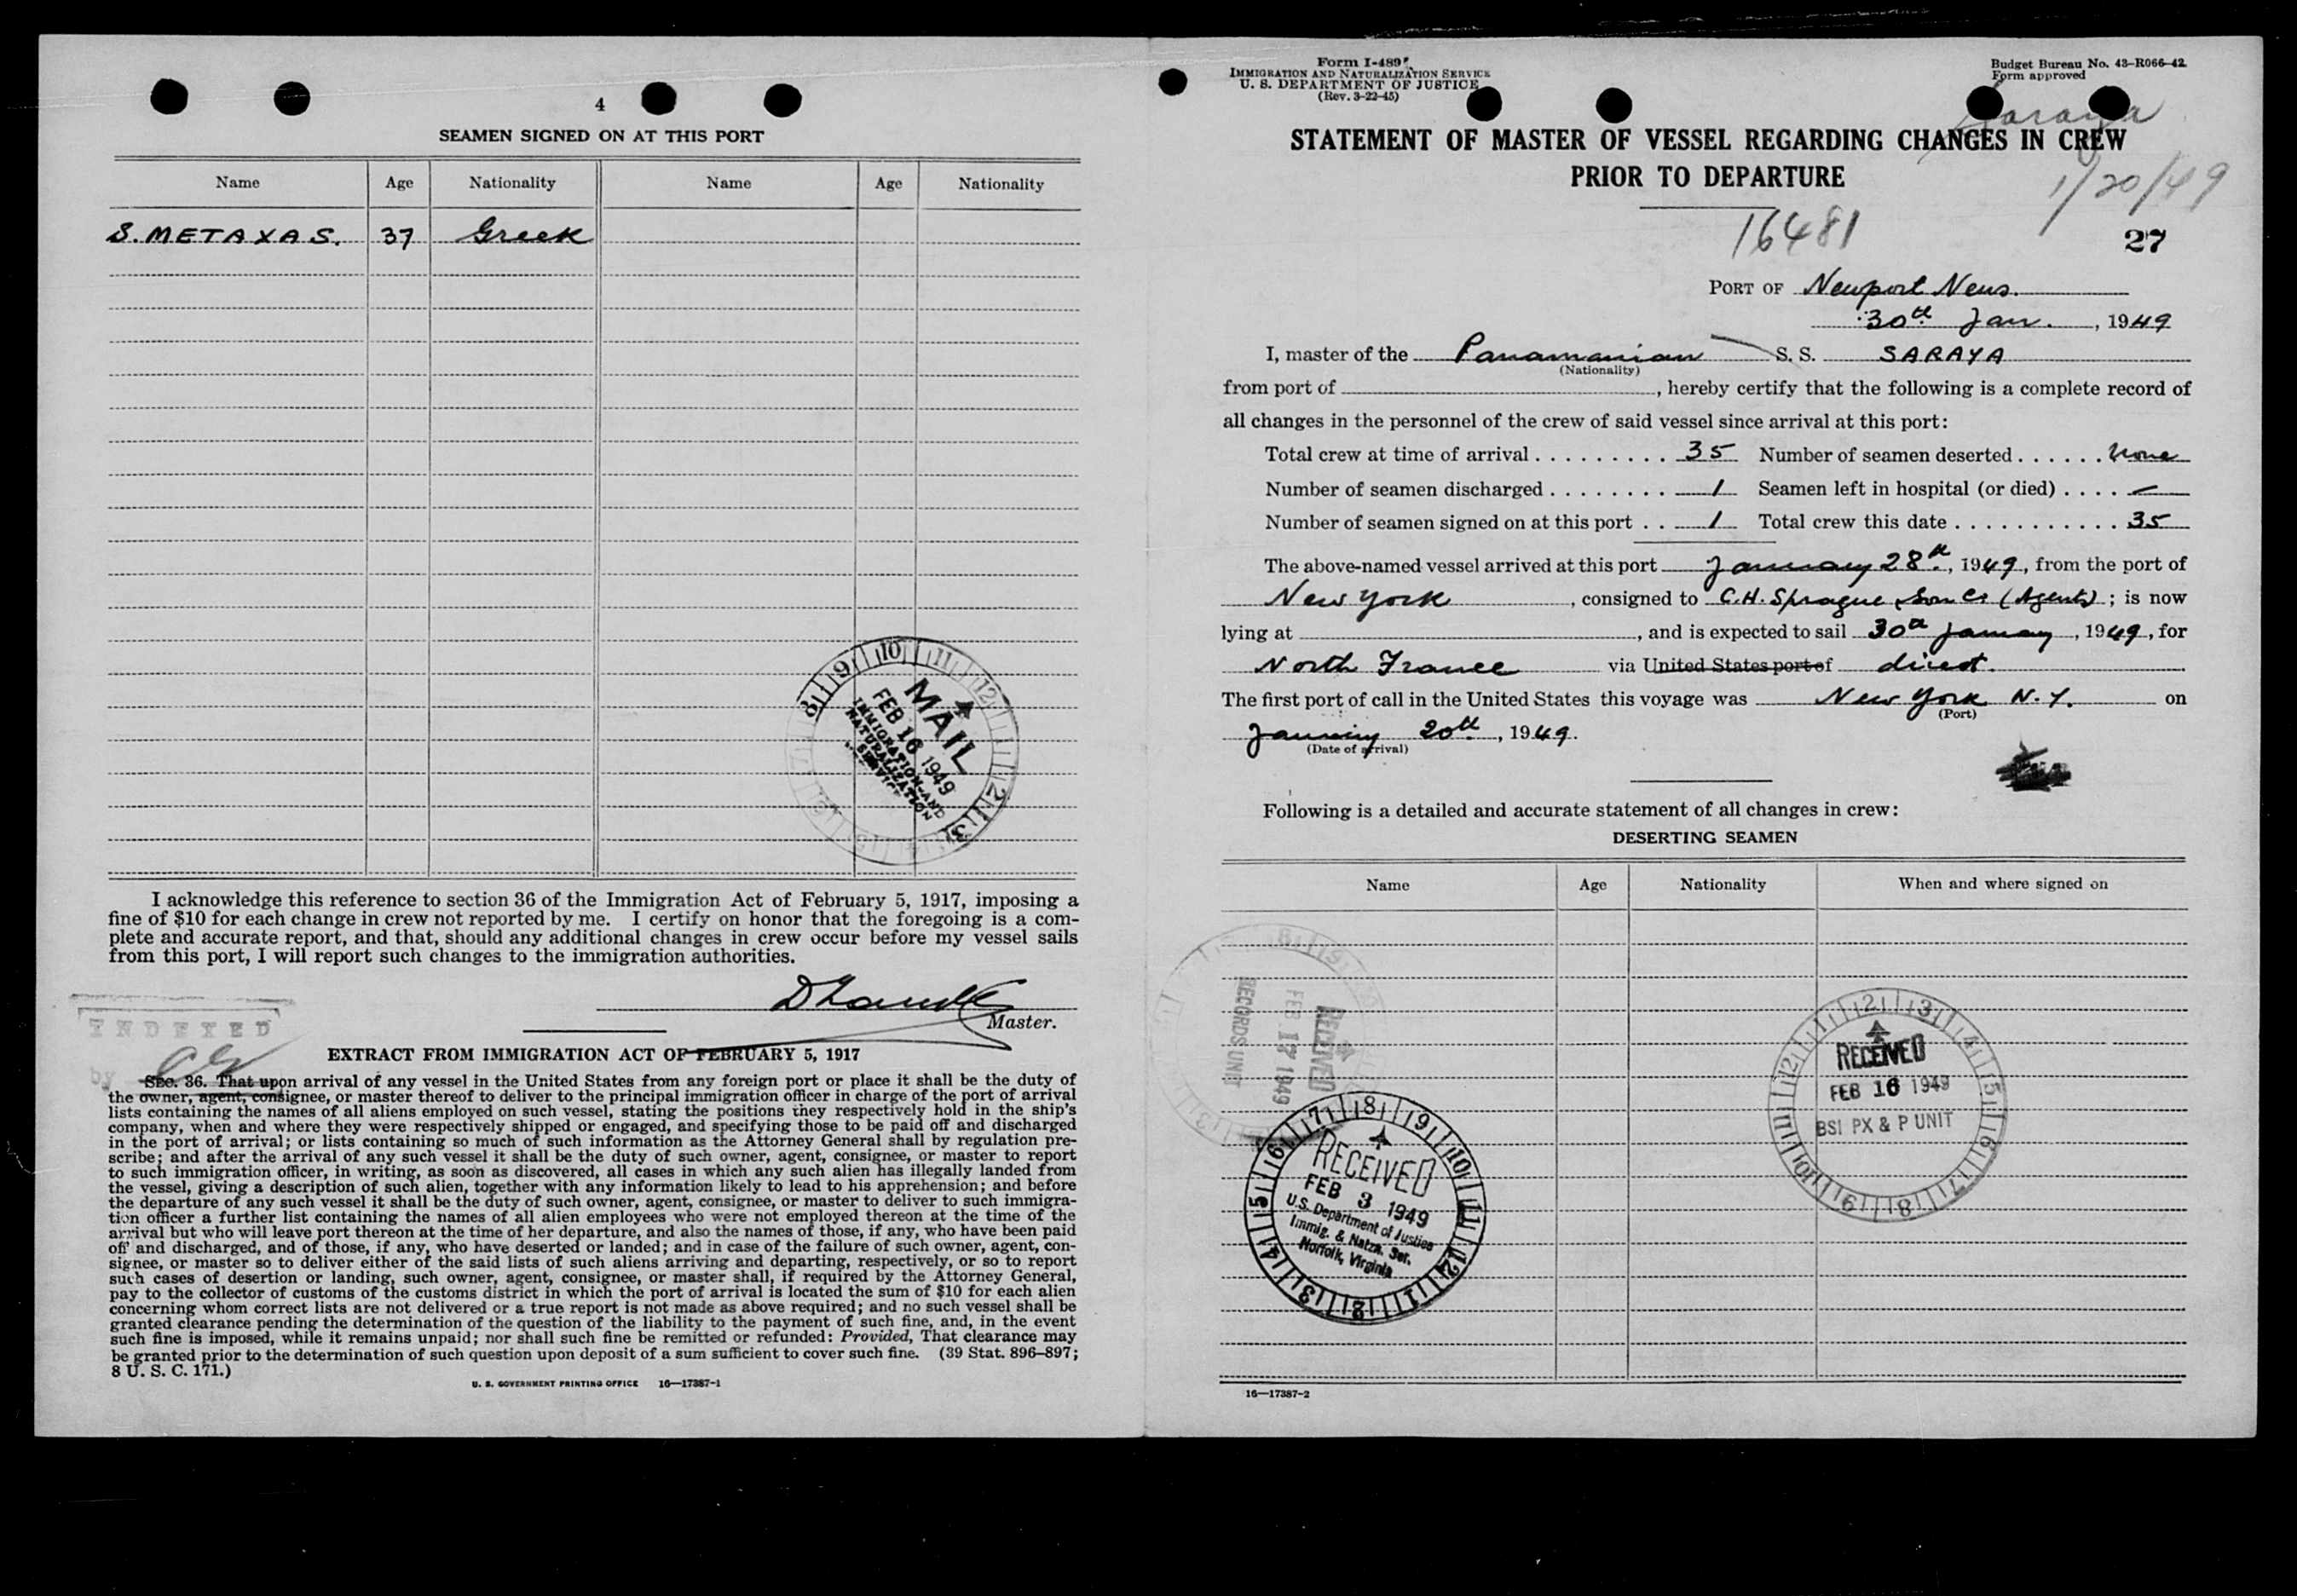 4
SEAMEN SIGNED ON AT THIS PORT
Name Age Nationality Name Age Nationality
S. METAXAS. 37 Greek
10 11 12
MAIL
FEB 16 1949
IMMIGRATION AND
NATURALIZATION
SERVICE
I acknowledge this reference to section 36 of the Immigration Act of February 5, 1917, imposing a
fine of $10 for each change in crew not reported by me. I certify on honor that the foregoing is a com-
plete and accurate report, and that, should any additional changes in crew occur before my vessel sails
from this port, I will report such changes to the immigration authorities.
Master.
INDEXED
by
EXTRACT FROM IMMIGRATION ACT OF FEBRUARY 5, 1917
SEC. 36. That upon arrival of any vessel in the United States from any foreign port or place it shall be the duty of
the owner, agent, consignee, or master thereof to deliver to the principal immigration officer in charge of the port of arrival
lists containing the names of all aliens employed on such vessel, stating the positions they respectively hold in the ship's
company, when and where they were respectively shipped or engaged, and specifying those to be paid off and discharged
in the port of arrival; or lists containing so much of such information as the Attorney General shall by regulation pre-
scribe; and after the arrival of any such vessel it shall be the duty of such owner, agent, consignee, or master to report
to such immigration officer, in writing, as soon as discovered, all cases in which any such alien has illegally landed from
the vessel, giving a description of such alien, together with any information likely to lead to his apprehension; and before
the departure of any such vessel it shall be the duty of such owner, agent, consignee, or master to deliver to such immigra-
tion officer a further list containing the names of all alien employees who were not employed thereon at the time of the
arrival but who will leave port thereon at the time of her departure, and also the names of those, if any, who have been paid
off and discharged, and of those, if any, who have deserted or landed; and in case of the failure of such owner, agent, con-
signee, or master so to deliver either of the said lists of such aliens arriving and departing, respectively, or so to report
such cases of desertion or landing, such owner, agent, consignee, or master shall, if required by the Attorney General,
pay to the collector of customs of the customs district in which the port of arrival is located the sum of $10 for each alien
concerning whom correct lists are not delivered or a true report is not made as above required; and no such vessel shall be
granted clearance pending the determination of the question of the liability to the payment of such fine, and, in the event
such fine is imposed, while it remains unpaid; nor shall such fine be remitted or refunded: Provided, That clearance may
be granted prior to the determination of such question upon deposit of a sum sufficient to cover such fine. (39 Stat. 896–897;
8 U. S. C. 171.)
U. S. GOVERNMENT PRINTING OFFICE 16—17387-1
Form I-489
IMMIGRATION AND NATURALIZATION SERVICE
U. S. DEPARTMENT OF JUSTICE
(Rev. 3-22-45)
Budget Bureau No. 43–R066–42
Form approved
Saraya
STATEMENT OF MASTER OF VESSEL REGARDING CHANGES IN CREW
PRIOR TO DEPARTURE
1/20/49
16481
27
PORT OF Newport News.
30th Jan. , 1949
I, master of the Panamanian S. S. SARAYA
(Nationality)
from port of , hereby certify that the following is a complete record of
all changes in the personnel of the crew of said vessel since arrival at this port:
Total crew at time of arrival 35 Number of seamen deserted None
Number of seamen discharged 1 Seamen left in hospital (or died) —
Number of seamen signed on at this port 1 Total crew this date 35
The above-named vessel arrived at this port January 28th., 1949, from the port of
New York , consigned to C.H. Sprague & Son Co (Agents) ; is now
lying at , and is expected to sail 30th January , 1949, for
North France via United States port of direct.
The first port of call in the United States this voyage was New York N.Y. on
(Port)
January 20th. , 1949.
(Date of arrival)
Following is a detailed and accurate statement of all changes in crew:
DESERTING SEAMEN
Name Age Nationality When and where signed on
RECEIVED
FEB 17 1949
RECORDS UNIT
RECEIVED
FEB 16 1949
BSI PX & P UNIT
RECEIVED
FEB 3 1949
U.S. Department of Justice
Immig. & Natzn. Ser.
Norfolk, Virginia
16—17387-2